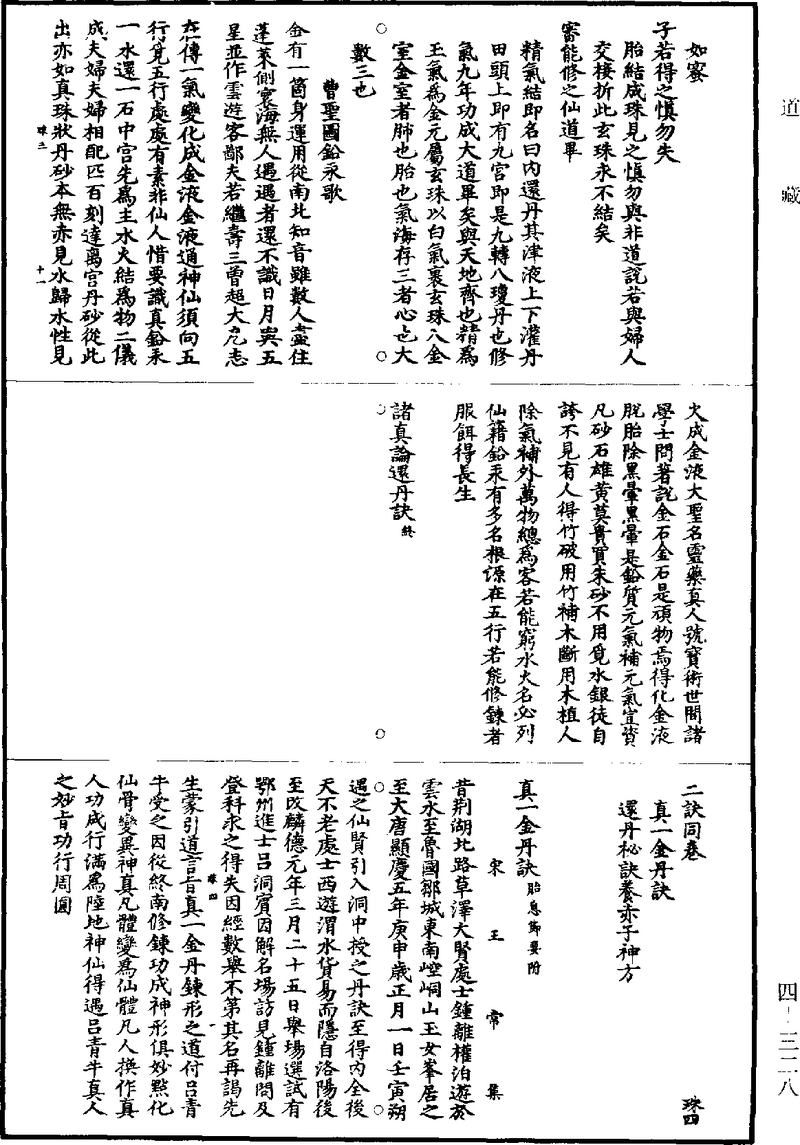 道藏
如蜜
子若得之慎勿失
胎結成珠見之慎勿與非道説若與婦人
交棲折此玄珠永不結矣
審能修之仙道畢
精氣結即名曰内還丹其津液上下灌丹
田頭上即有九宫即是九轉八瓊丹也修
氣九年功成大道畢矣與天地齊也精爲
玉氣爲金元屬玄珠以白氣裹玄珠入金
室金室者肺也胎也氣海存三者心也大
數三也
曹聖圖鉛汞歌
金有一箇身運用從南北知音雖數人盡住
蓬萊側寰海無人遇遇者還不識日月與五
星並作雲遊客鄙夫若繼壽三曾超大九志
在傳一氣變化成金液金液通神仙須向五
行覓五行處處有素非仙人惜要識真鉛汞
一水還一石中宫先爲主水火結爲物二儀
成夫婦夫婦相配匹百刻達离宫丹砂從此
出亦如真珠狀丹砂本無赤見水歸水性見
珠三
十一
火成金液大聖名靈藥真人號寶術世間諸
學士問著説金石金石是頑物焉得化金液
脱胎除黑暈黑暈是鉛質元氣補元氣宜資
凡砂石雄黄莫貴買朱砂不用覓水銀徒自
誇不見有人得竹破用竹補木斷用木植人
除氣補外萬物總爲客若能窮水火名必列
仙籍鉛汞有多名根源在五行若能修鍊者
服餌得長生
諸真論還丹訣終
二訣同卷
真一金丹訣
還丹秘訣養赤子神方
真一金丹訣胎息節要附
宋王常集
昔荆湖北路草澤大賢處士鍾離權泊遊於
雲水至魯國鄒城東南崆峒山玉女峯居之
至大唐顯慶五年庚申歲正月一日壬寅朔
遇之仙賢引入洞中授之丹訣至得内全後
天不老處士西遊渭水貨易而隱自洛陽後
至改麟德元年三月二十五日舉場選試有
鄂州進士吕洞賓因解名場訪見鍾離問及
登科求之得失因經數舉不第其名再謁先
珠四
生蒙引道言旨真一金丹鍊形之道付吕青
牛受之因從終南修鍊功成神形俱妙點化
仙骨變異神真凡體變爲仙體凡人换作真
人功成行滿爲陸地神仙得遇吕青牛真人
之妙旨功行周圓
四-三二八
珠四